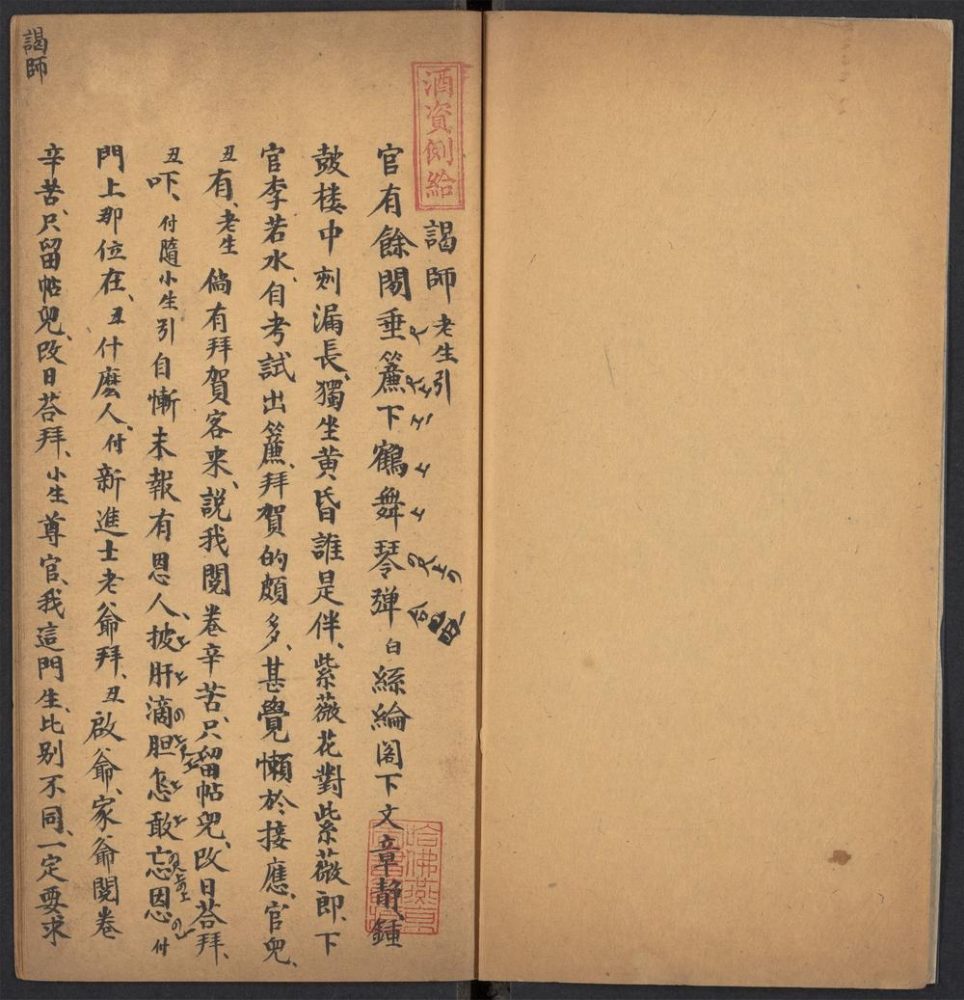 酒資例給
謁師 老生引
官有餘閒垂簾下鶴舞琴弹 白 絲綸阁下文章静、鍾
皷楼中刻漏長、獨坐黄昏誰是伴、紫薇花對紫薇郎、下
官李若水、自考試出簾、拜賀的頗多、甚覺懶於接應、官兒、
丑有、老生倘有拜賀客来、説我閱卷辛苦、只留帖兒、改日荅拜、
丑吓、付隨小生引自慚未報有恩人、披肝滴胆怎敢忘恩 付
門上那位在、丑什麽人、付新進士老爺拜、丑啟爺、家爺閱卷
辛苦、只留帖兒、改日荅拜、小生尊官、我這門生、比别不同、一定要求
謁師
哈佛燕京